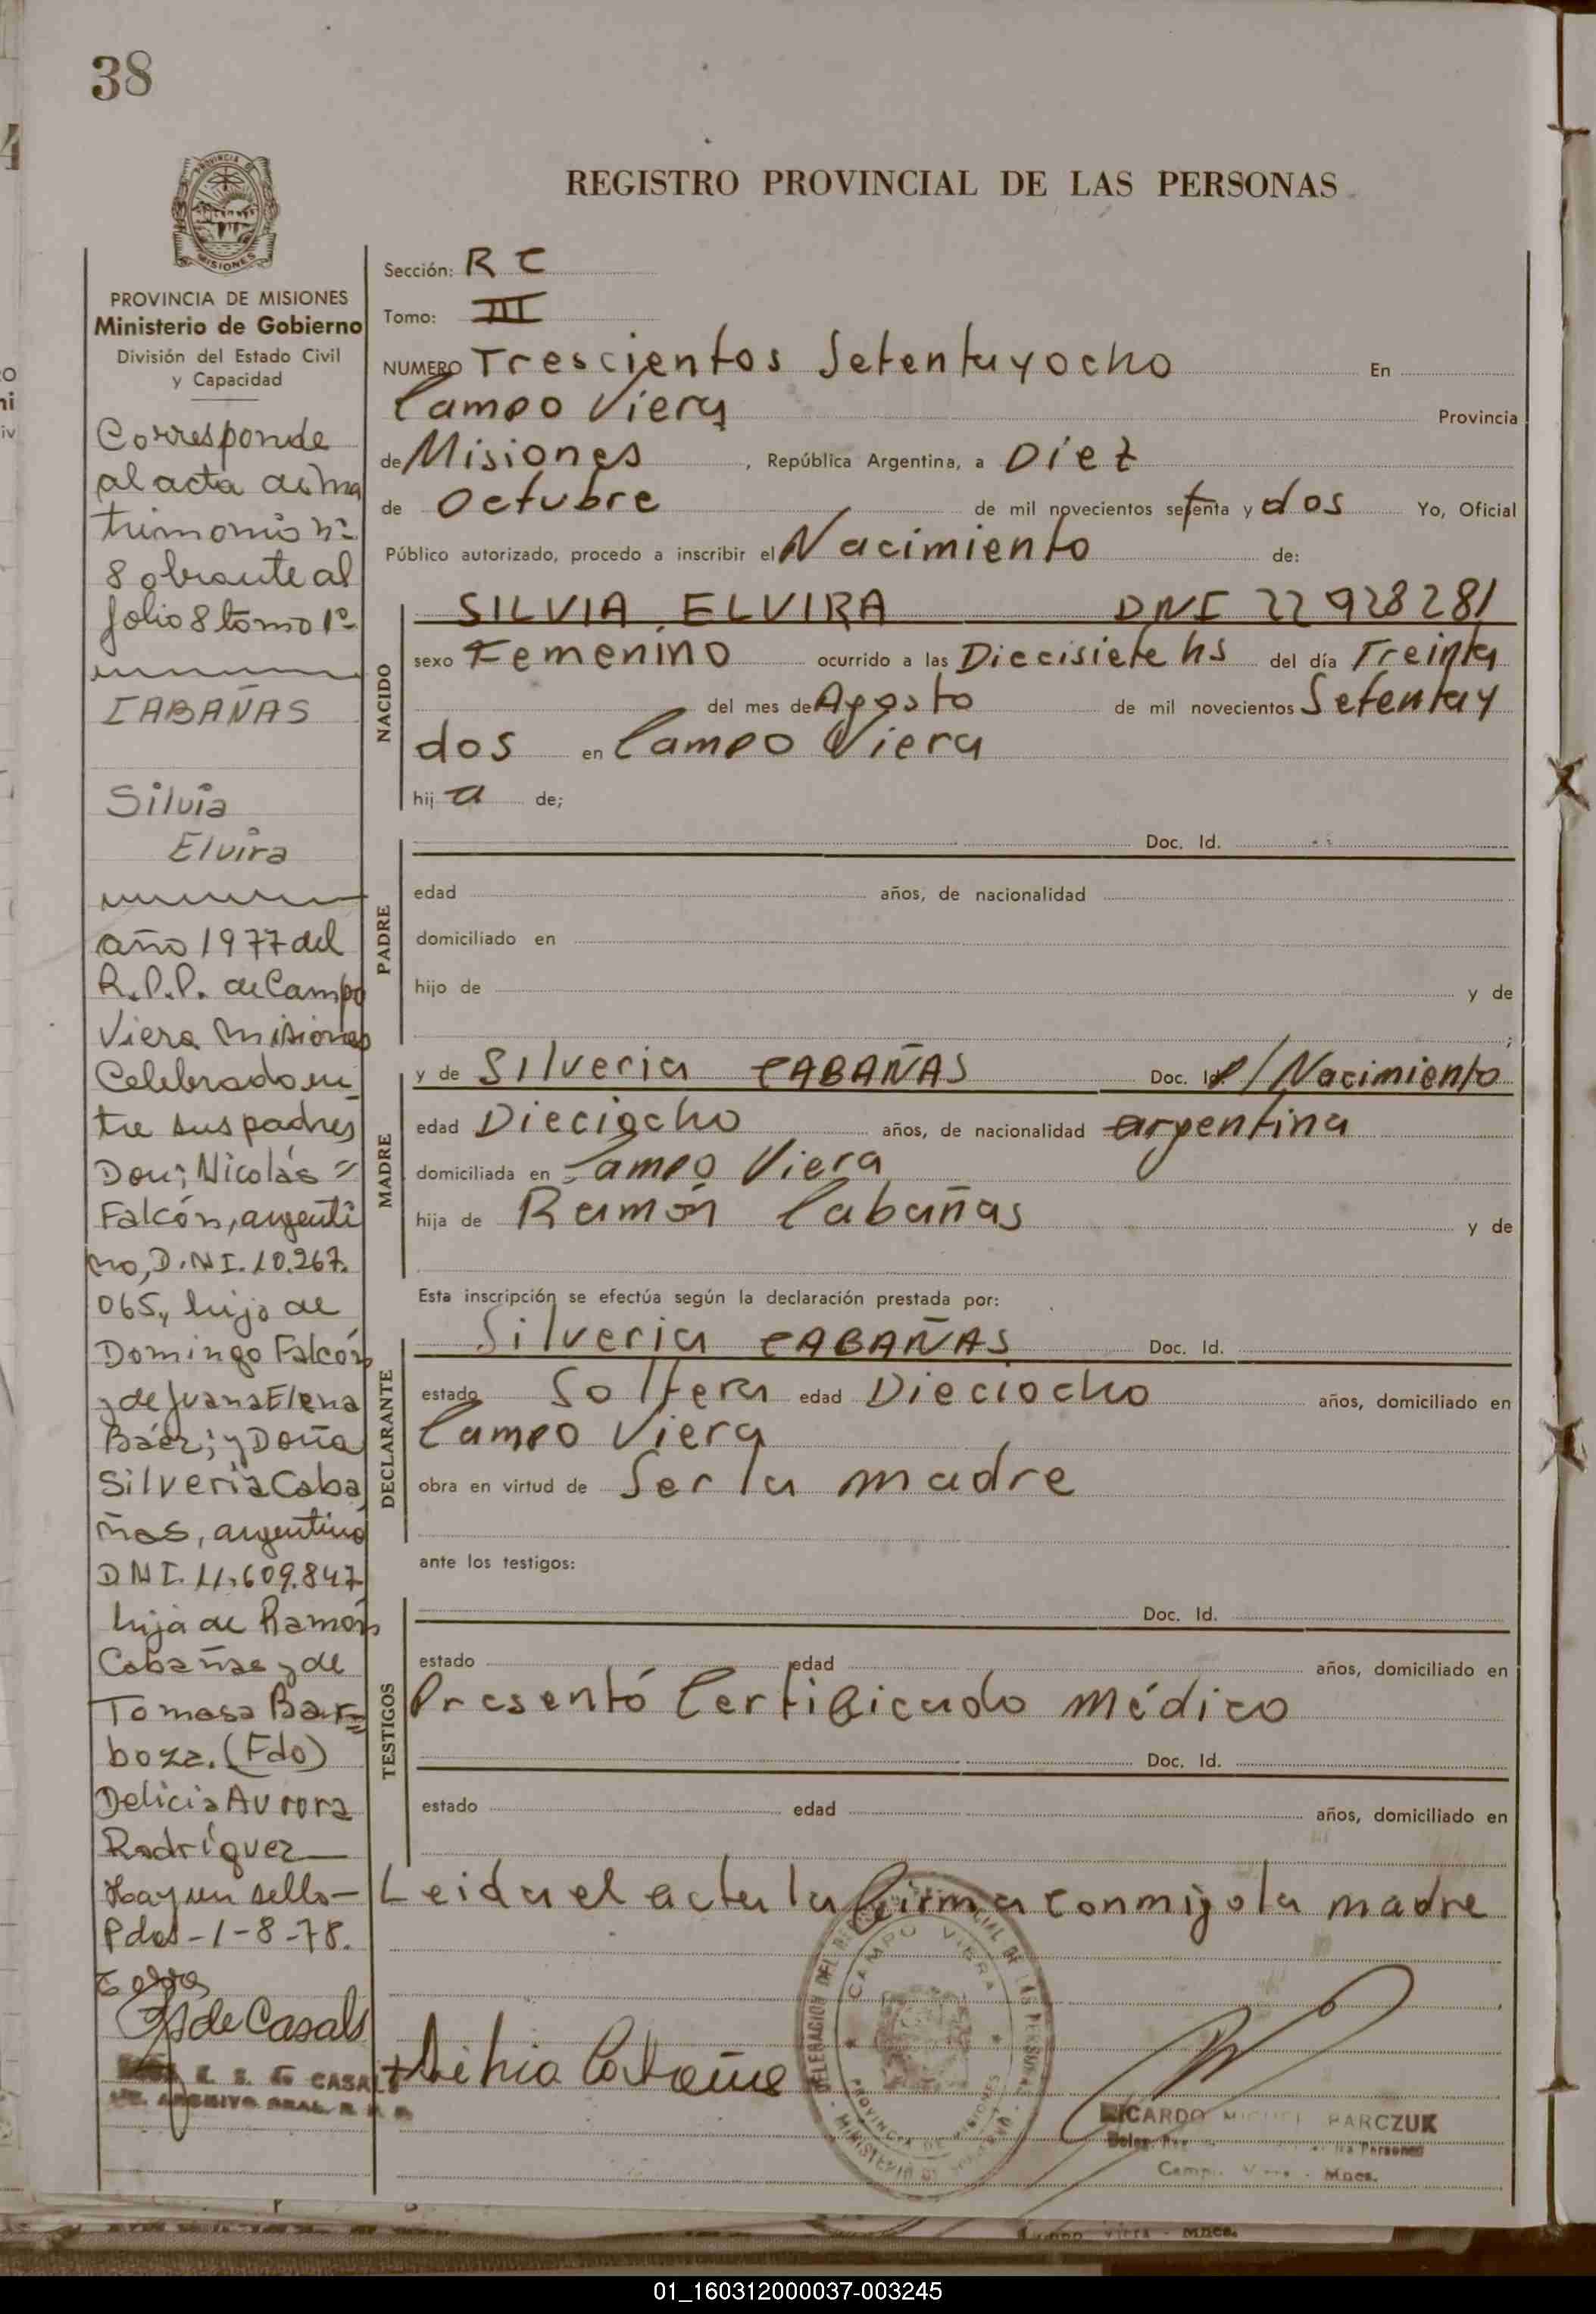 38
REGISTRO PROVINCIAL DE LAS PERSONAS
PROVINCIA DE MISIONES
Ministerio de Gobierno
División del Estado Civil
y Capacidad
Corresponde
al acta de ma
trimonio nº
8 obrante al
folio 8 tomo 1º
CABAÑAS
Silvia
Elvira
año 1977 del
R.P.P. de Campo
Viera Misiones
Celebrado en
tre sus padres
Don; Nicolás =
Falcón, argenti
no, D.N.I. 10.267.
065, hijo de
Domingo Falcón
y de Juana Elena
Báez; y Doña
Silveria Caba
ñas, argentina
DNI. 11.609.847
hija de Ramón
Cabañas y de
Tomasa Bar=
boza. (Fdo)
Delicia Aurora
Rodríguez
Hay un sello-
Pdas-1-8-78.
de Casals
E. S. G CASALS
Sección: R C
Tomo: III
NUMERO Trescientos Setentayocho En
Campo Viera Provincia
de Misiones , República Argentina, a Diez
de Octubre de mil novecientos setenta y dos Yo, Oficial
Público autorizado, procedo a inscribir el Nacimiento de:
NACIDO
SILVIA ELVIRA DNI 22 928281
sexo Femenino ocurrido a las Diecisiete hs del día Treinta
del mes de Agosto de mil novecientos Setentay
dos en Campo Viera
hij a de;
PADRE
Doc. Id.
edad años, de nacionalidad
domiciliado en
hijo de y de
;
MADRE
y de Silveria CABAÑAS Doc. Id. P/Nacimiento
edad Dieciocho años, de nacionalidad argentina
domiciliada en Campo Viera
hija de Ramón Cabañas y de
Esta inscripción se efectúa según la declaración prestada por:
DECLARANTE
Silveria CABAÑAS Doc. Id.
estado Soltera edad Dieciocho años, domiciliado en
Campo Viera
obra en virtud de Ser la madre
ante los testigos:
TESTIGOS
Doc. Id.
estado edad años, domiciliado en
Presentó Certificado Médico
Doc. Id.
estado edad años, domiciliado en
Leida el acta la firma conmigo la madre
CAMPO VIERA
PROVINCIA DE MISIONES
RICARDO MIGUEL BARCZUK
Mnes.
01_160312000037-003245